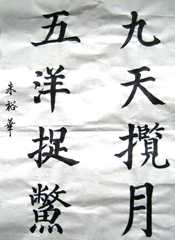 九天攬月
五洋捉鱉
朱裕華